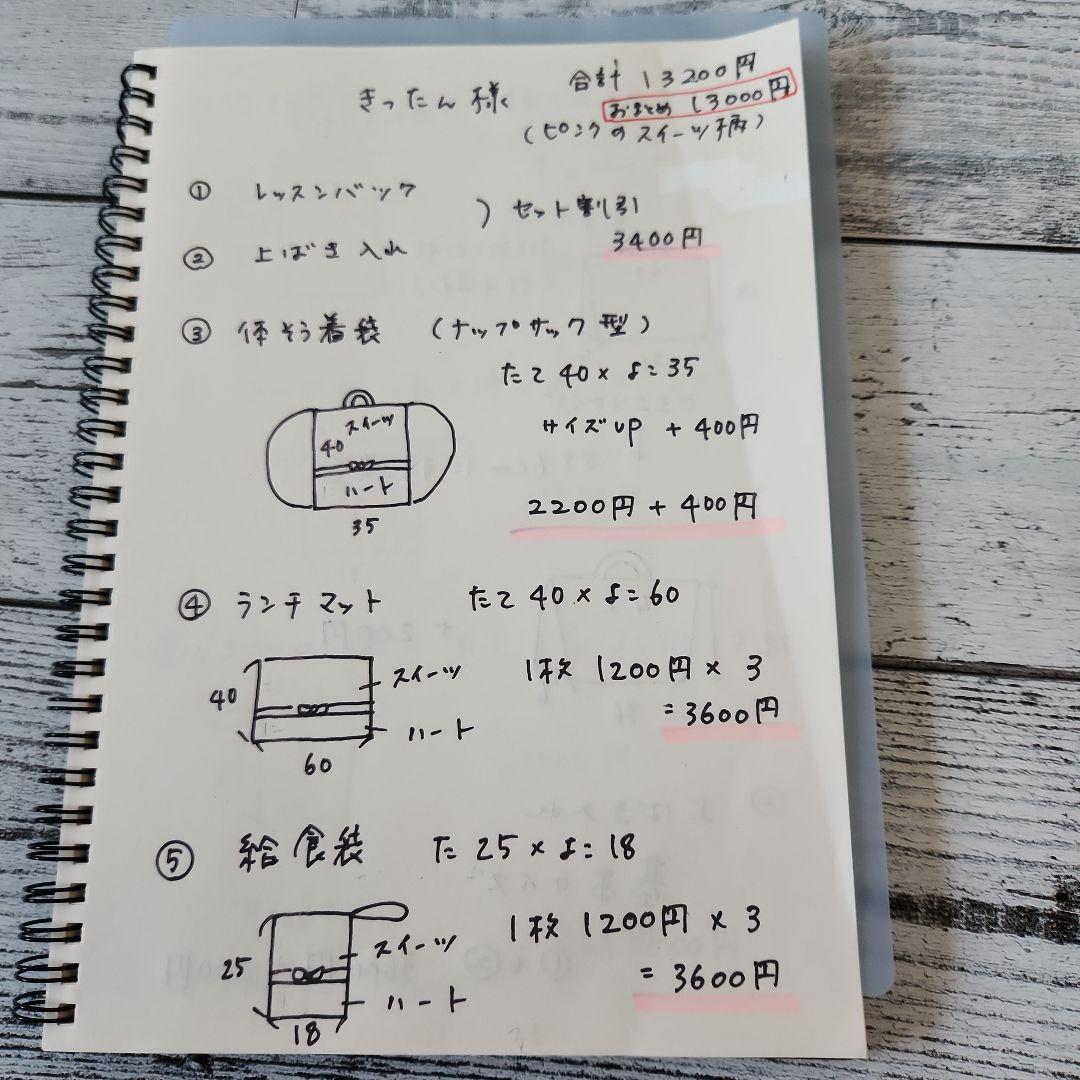 きったん様
合計 13200円
おまとめ 13000円
(ピンクのスイーツ柄)
① レッスンバック
② 上ばき入れ
) セット割引
3400円
③ 体そう着袋 (ナップサック型)
たて40×よこ35
サイズup +400円
2200円+400円
スイーツ
40
ハート
35
④ ランチマット たて40×よこ60
40
スイーツ
ハート
60
1枚 1200円×3
=3600円
⑤ 給食袋 た25×よこ18
25
スイーツ
ハート
18
1枚 1200円×3
=3600円